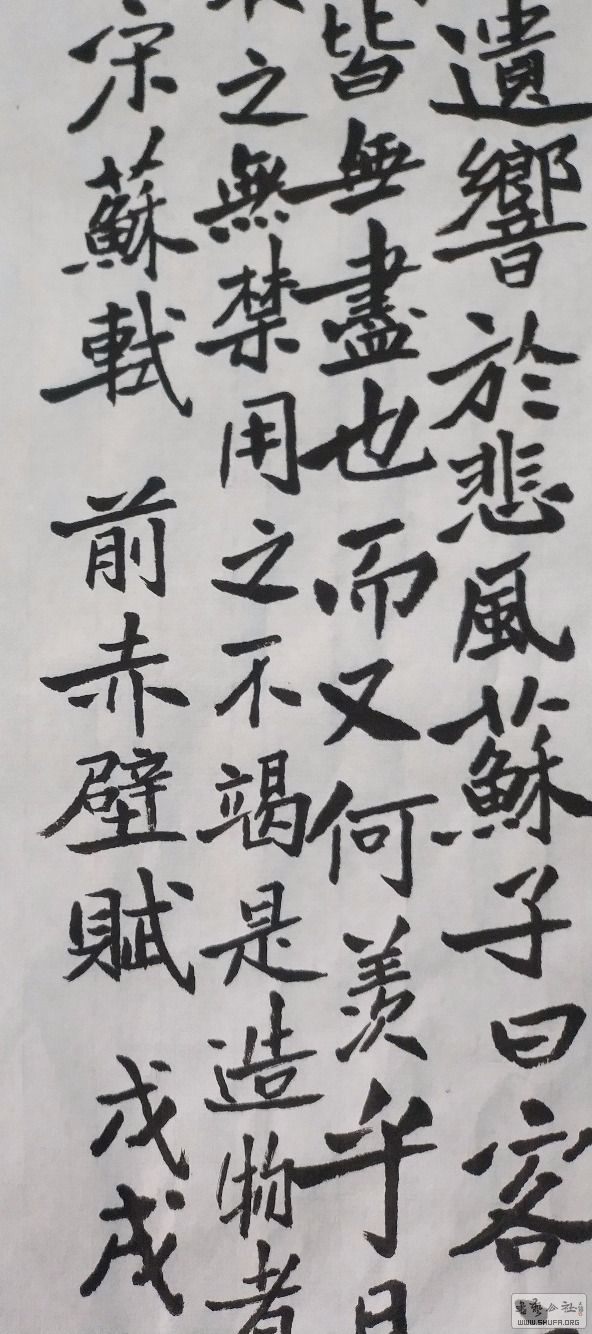 遺響於悲風蘇子曰客
皆無盡也而又何羨乎
之無禁用之不竭是造物者
宋蘇軾 前赤壁賦 戊戌
書藝公社
WWW.SHUFA.ORG